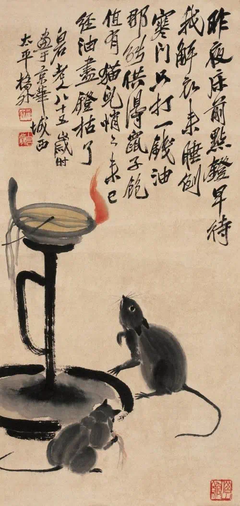 昨夜床前點鐙早待
我解衣來睡倒
寒門只打一錢油
那能供得鼠子飽
值有貓兒悄々來已
經油盡鐙枯了
白石老人八十五歲時
畫于京華城西
太平橋外